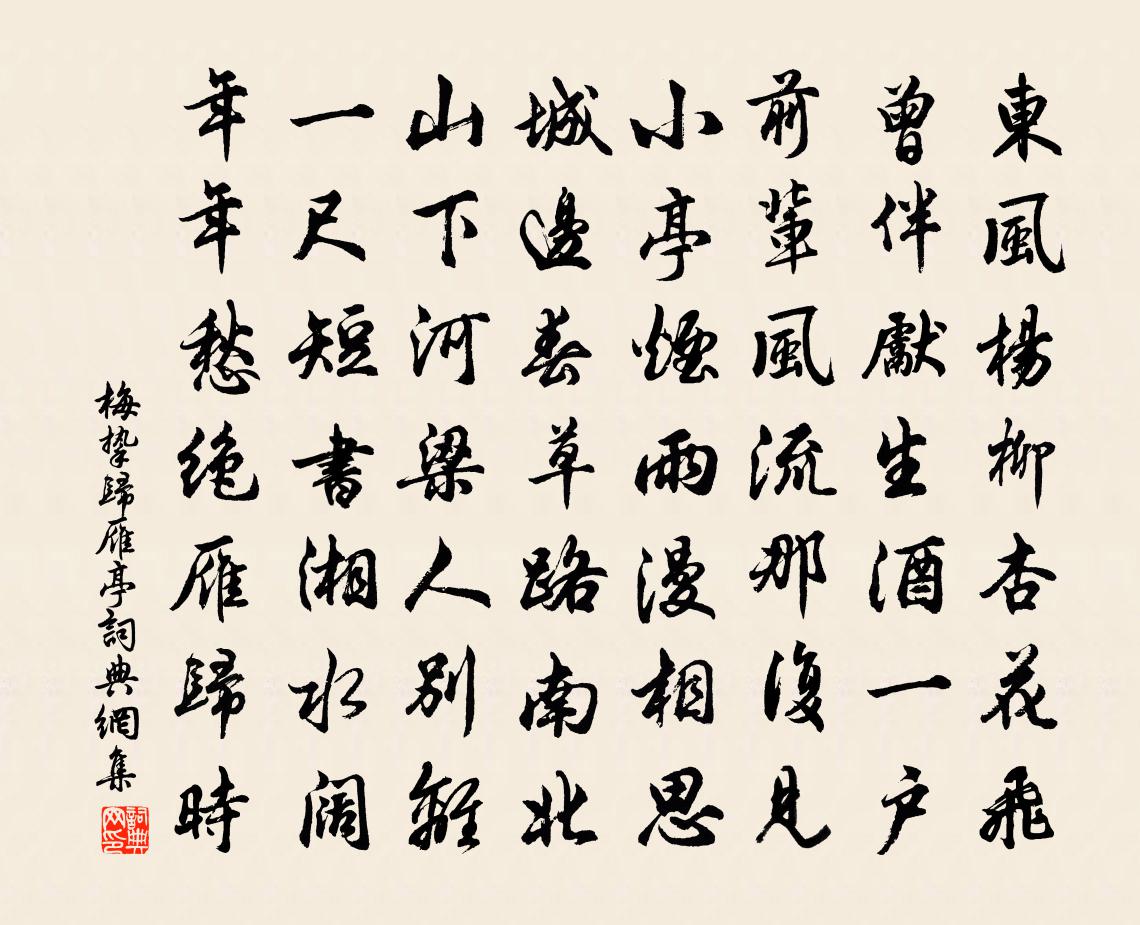 東風楊柳杏花飛
曾伴獻生酒一戶
前輩風流那復見
小亭煙雨漫相思
城邊春草路南北
山下河梁人別離
一尺短書湘水闊
年年愁絕雁歸時
梅摯歸雁亭詞典網集
詞典
网印